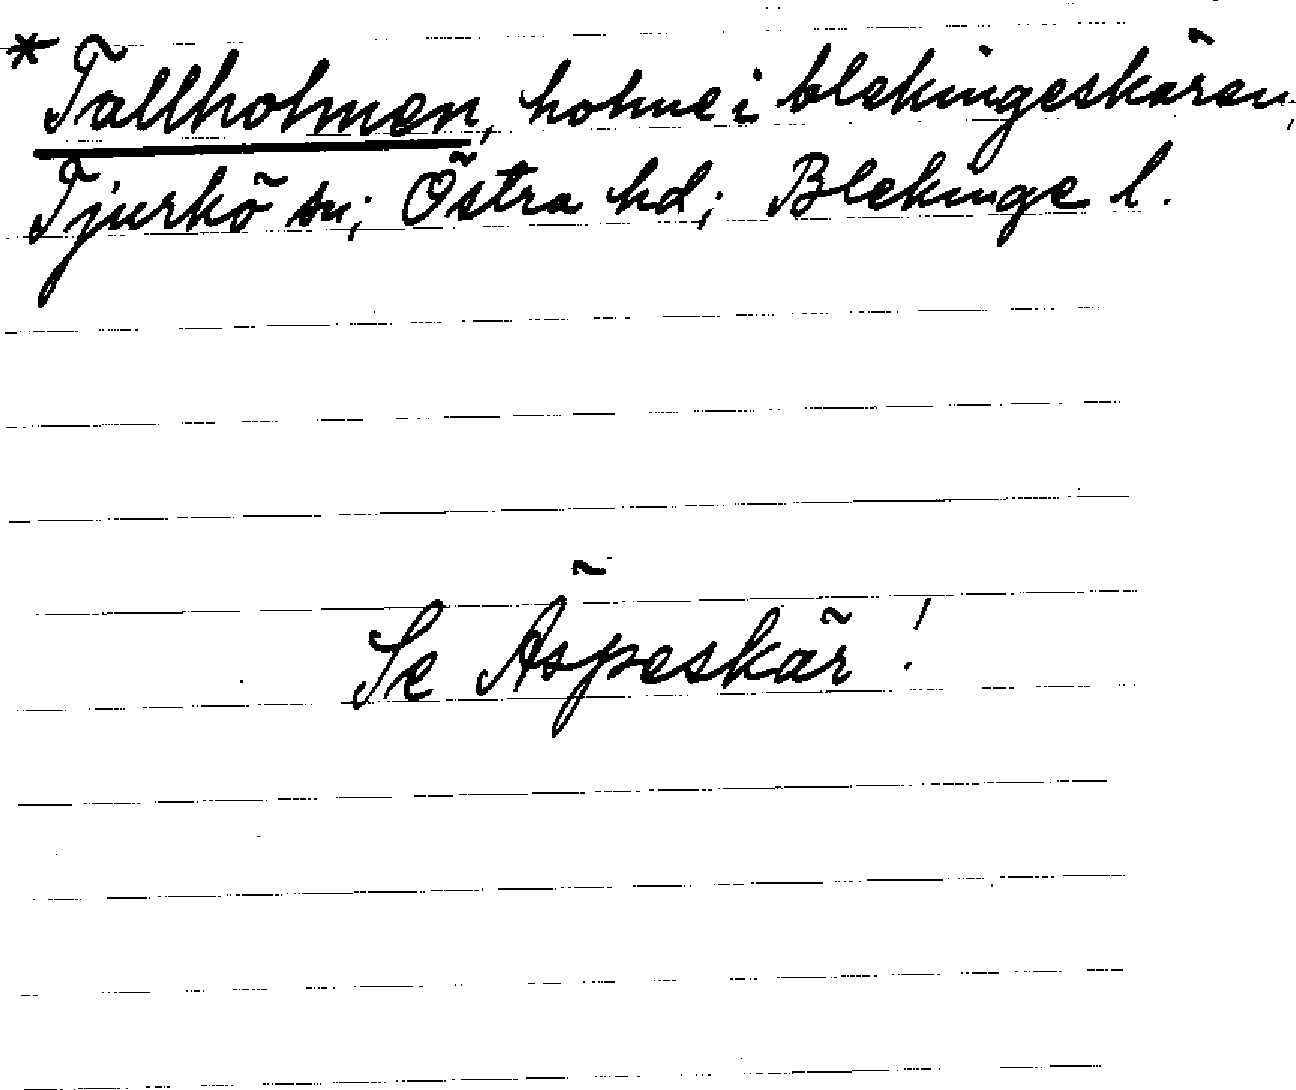 * Tallholmen, holme i blekingeskären,
Tjurkö sn; Östra hd; Blekinge l.
Se Äspeskär!